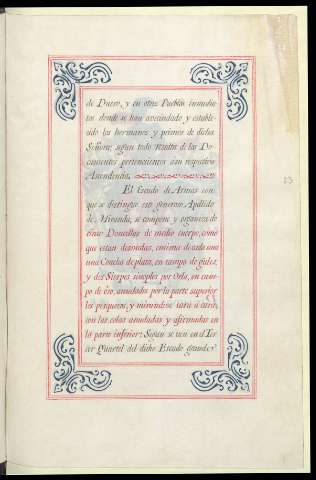 de Duero, y en otros Pueblos inmedia-
tos donde se han avecindado y estable-
cido los hermanos y primos de dichos
Señores; segun todo resulta de los Do-
cumentos pertenecientes á su respectiva
Ascendencia.
El Escudo de Armas con
que se distingue este generoso Apellido
de Miranda, se compone y organiza de
cinco Doncellas de medio cuerpo, como
que estan desnudas, encima de cada una
una Concha de plata, en campo de gules;
y dos Sierpes sinoples por Orla, en cam-
po de oro, anudadas por la parte superior
los pesquezos, y mirandose cara á cara,
con las colas anudadas y afirmadas en
la parte inferior: Segun se ven en el Ter-
cer Quartel del dicho Escudo grande